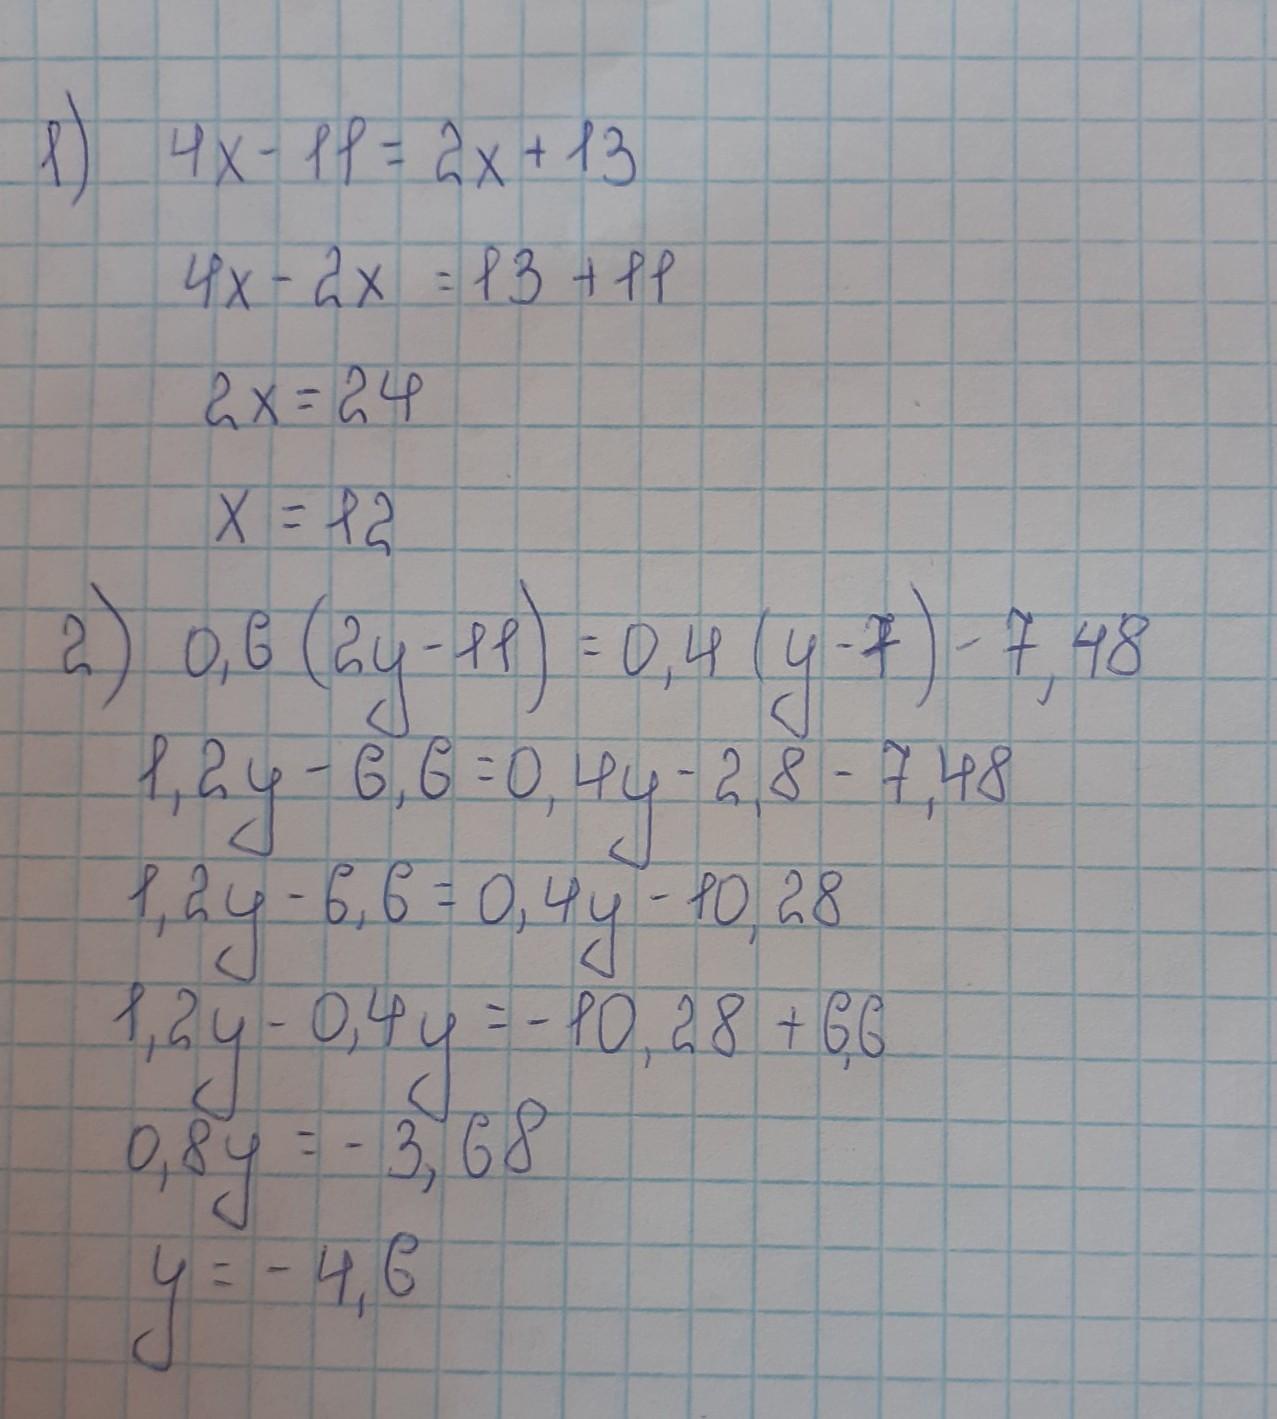 1) 4x - 11 = 2x + 13
4x - 2x = 13 + 11
2x = 24
x = 12
2) 0,6 (2y - 11) = 0,4 (y - 7) - 7,48
1,2y - 6,6 = 0,4y - 2,8 - 7,48
1,2y - 6,6 = 0,4y - 10,28
1,2y - 0,4y = - 10,28 + 6,6
0,8y = - 3,68
y = - 4,6